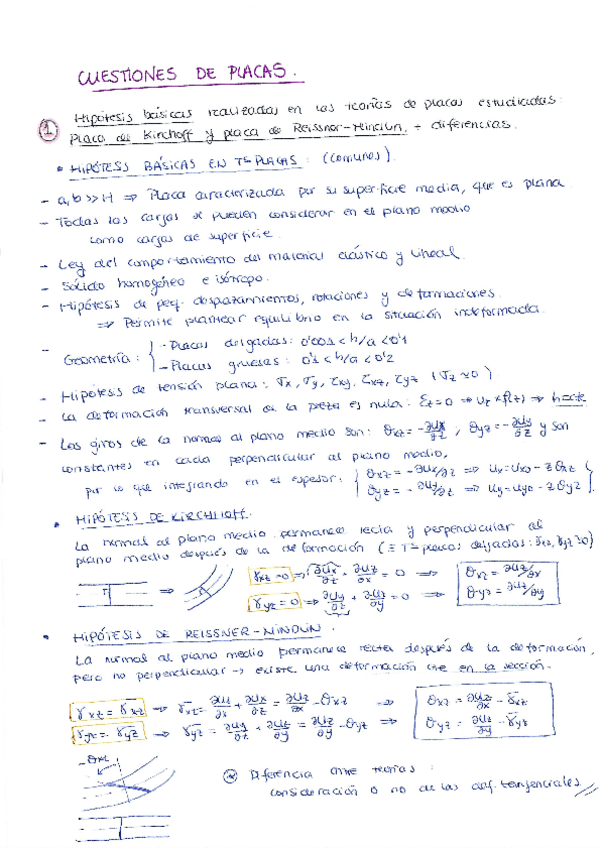 CUESTIONES DE PLACAS.
① Hipótesis básicas realizadas en las teorías de placas estudiadas:
Placa de Kirchoff y placa de Reissner-Mindlin, + diferencias.
• HIPÓTESIS BÁSICAS EN Tª PLACAS: (comunes).
- a,b >> H ⇒ Placa caracterizada por su superficie media, que es plana.
- Todas las cargas se pueden considerar en el plano medio
como cargas de superficie.
- Ley del comportamiento del material elástico y lineal.
- Sólido homogéneo e isótropo.
- Hipótesis de peq. desplazamientos, rotaciones y deformaciones.
⇒ Permite plantear equilibrio en la situación indeformada.
- Geometría: { - Placas delgadas: 0'001 < h/a < 0'1
- Placas gruesas: 0'1 < h/a < 0'2
- Hipótesis de tensión plana: σx, σy, τxy, τxz, τyz (σz ≃ 0)
- La deformación transversal de la pieza es nula: εz = 0 ⇒ uz ≠ f(z) ⇒ h = cte
- Los giros de la normal al plano medio son: θxz = -∂ux/∂z, θyz = -∂uy/∂z y son
constantes en cada perpendicular al plano medio,
por lo que integrando en el espesor: { θxz = -∂ux/∂z ⇒ ux = ux0 - z θxz
θyz = -∂uy/∂z ⇒ uy = uy0 - z θyz }
• HIPÓTESIS DE KIRCHHOFF.
La normal al plano medio permanece recta y perpendicular al
plano medio después de la deformación (≡ Tª placas delgadas: γxz, γyz ≃ 0)
γxz = 0 ⇒ ∂ux/∂z + ∂uz/∂x = 0 ⇒ θxz = ∂uz/∂x
γyz = 0 ⇒ ∂uy/∂z + ∂uz/∂y = 0 ⇒ θyz = ∂uz/∂y
• HIPÓTESIS DE REISSNER-MINDLIN.
La normal al plano medio permanece recta después de la deformación,
pero no perpendicular → existe una deformación cte en la sección.
γxz = γ̄xz ⇒ γ̄xz = ∂uz/∂x + ∂ux/∂z = ∂uz/∂x - θxz ⇒ θxz = ∂uz/∂x - γ̄xz
γyz = γ̄yz ⇒ γ̄yz = ∂uy/∂z + ∂uz/∂y = ∂uz/∂y - θyz ⇒ θyz = ∂uz/∂y - γ̄yz
- θxz
⊛ Diferencia entre teorías:
consideración o no de las def. tangenciales.